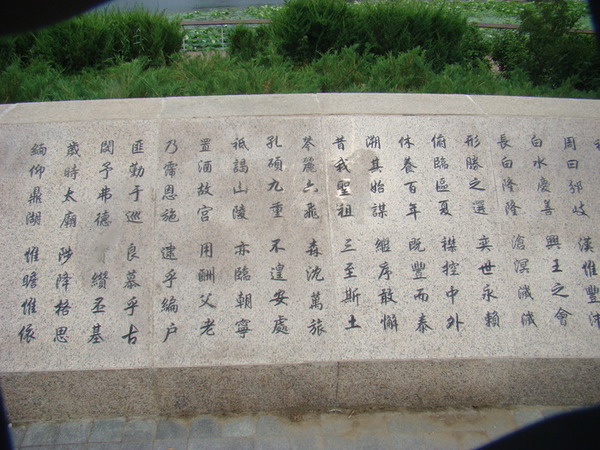 周曰邠岐 漢惟豐沛
白水慶善 興王之會
長白隆隆 滄溟濊濊
形勝之選 奕世永賴
俯臨區夏 襟控中外
休養百年 既豐而泰
溯其始謀 繼序敢懈
昔我聖祖 三至斯土
麗六飛 森沈萬旅
孔碩九重 不遑安處
祗謁山陵 亦臨朝寧
置酒故宮 用酬父老
乃霈恩施 逮乎編户
匪勤于巡 良慕乎古
閔予弗德 纘丕基
歲時太廟 陟降格思
緬仰鼎湖 惟瞻惟依